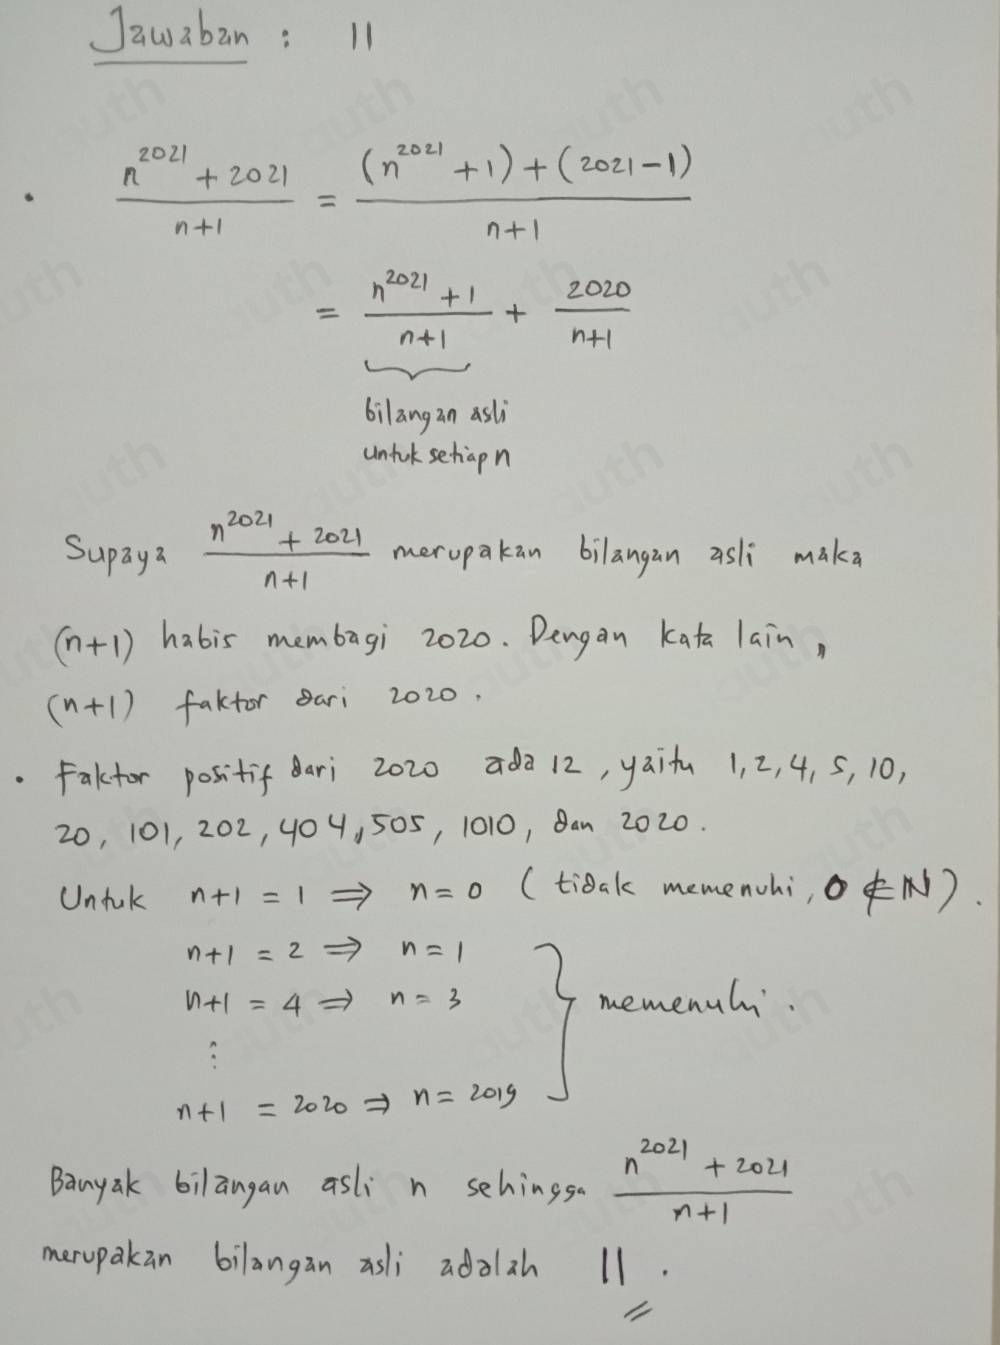 Jawaban : 11
• \frac{n^{2021} + 2021}{n+1} = \frac{(n^{2021} + 1) + (2021 - 1)}{n+1}
= \frac{n^{2021} + 1}{n+1} + \frac{2020}{n+1}
bilangan asli
untuk setiap n
Supaya \frac{n^{2021} + 2021}{n+1} merupakan bilangan asli maka
(n+1) habis membagi 2020. Dengan kata lain,
(n+1) faktor dari 2020.
• Faktor positif dari 2020 ada 12, yaitu 1, 2, 4, 5, 10,
20, 101, 202, 404, 505, 1010, dan 2020.
Untuk n+1 = 1 ⇒ n = 0 (tidak memenuhi, 0 ∉ ℕ).
n+1 = 2 ⇒ n = 1
n+1 = 4 ⇒ n = 3 } memenuhi.
⋮
n+1 = 2020 ⇒ n = 2019
Banyak bilangan asli n sehingga \frac{n^{2021} + 2021}{n+1}
merupakan bilangan asli adalah 11.